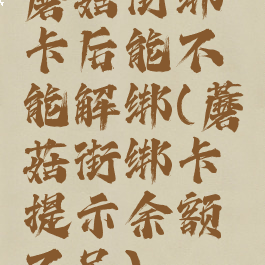 蘑菇街绑
卡后能不
能解绑(蘑
菇街绑卡
提示余额
不足)